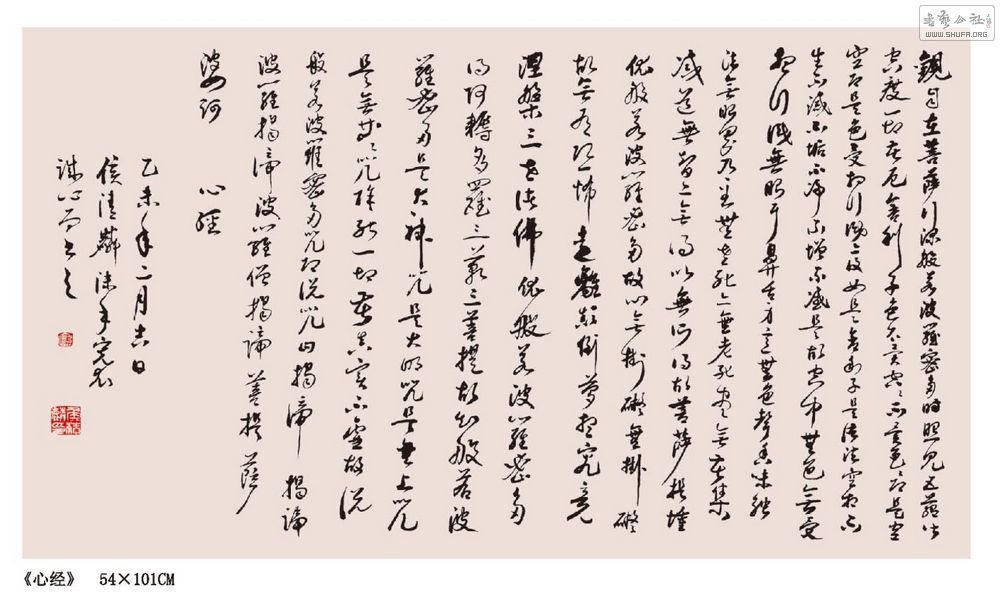 觀自在菩薩行深般若波羅蜜多時照見五蘊皆
空度一切苦厄舍利子色不異空空不異色色即是空
空即是色受想行識亦復如是舍利子是諸法空相不
生不滅不垢不淨不增不減是故空中無色無受
想行識無眼耳鼻舌身意無色聲香味觸
法無眼界乃至無老死亦無老死盡無苦集
滅道無智亦無得以無所得故菩薩提埵
依般若波羅蜜多故心無掛礙無掛礙
故無有恐怖遠離顛倒夢想究竟
涅槃三世諸佛依般若波羅蜜多
得阿耨多羅三藐三菩提故知般若波
羅蜜多是大神咒是大明咒是無上咒
是無等等咒能除一切苦真實不虛故說
般若波羅蜜多咒即說咒曰揭諦 揭諦
波羅揭諦波羅僧揭諦 菩提薩
婆訶 心經
乙未年二月吉日
侯清麟沐手
心而書之
《心经》 54×101CM
书艺公社
WWW.SHUFA.ORG